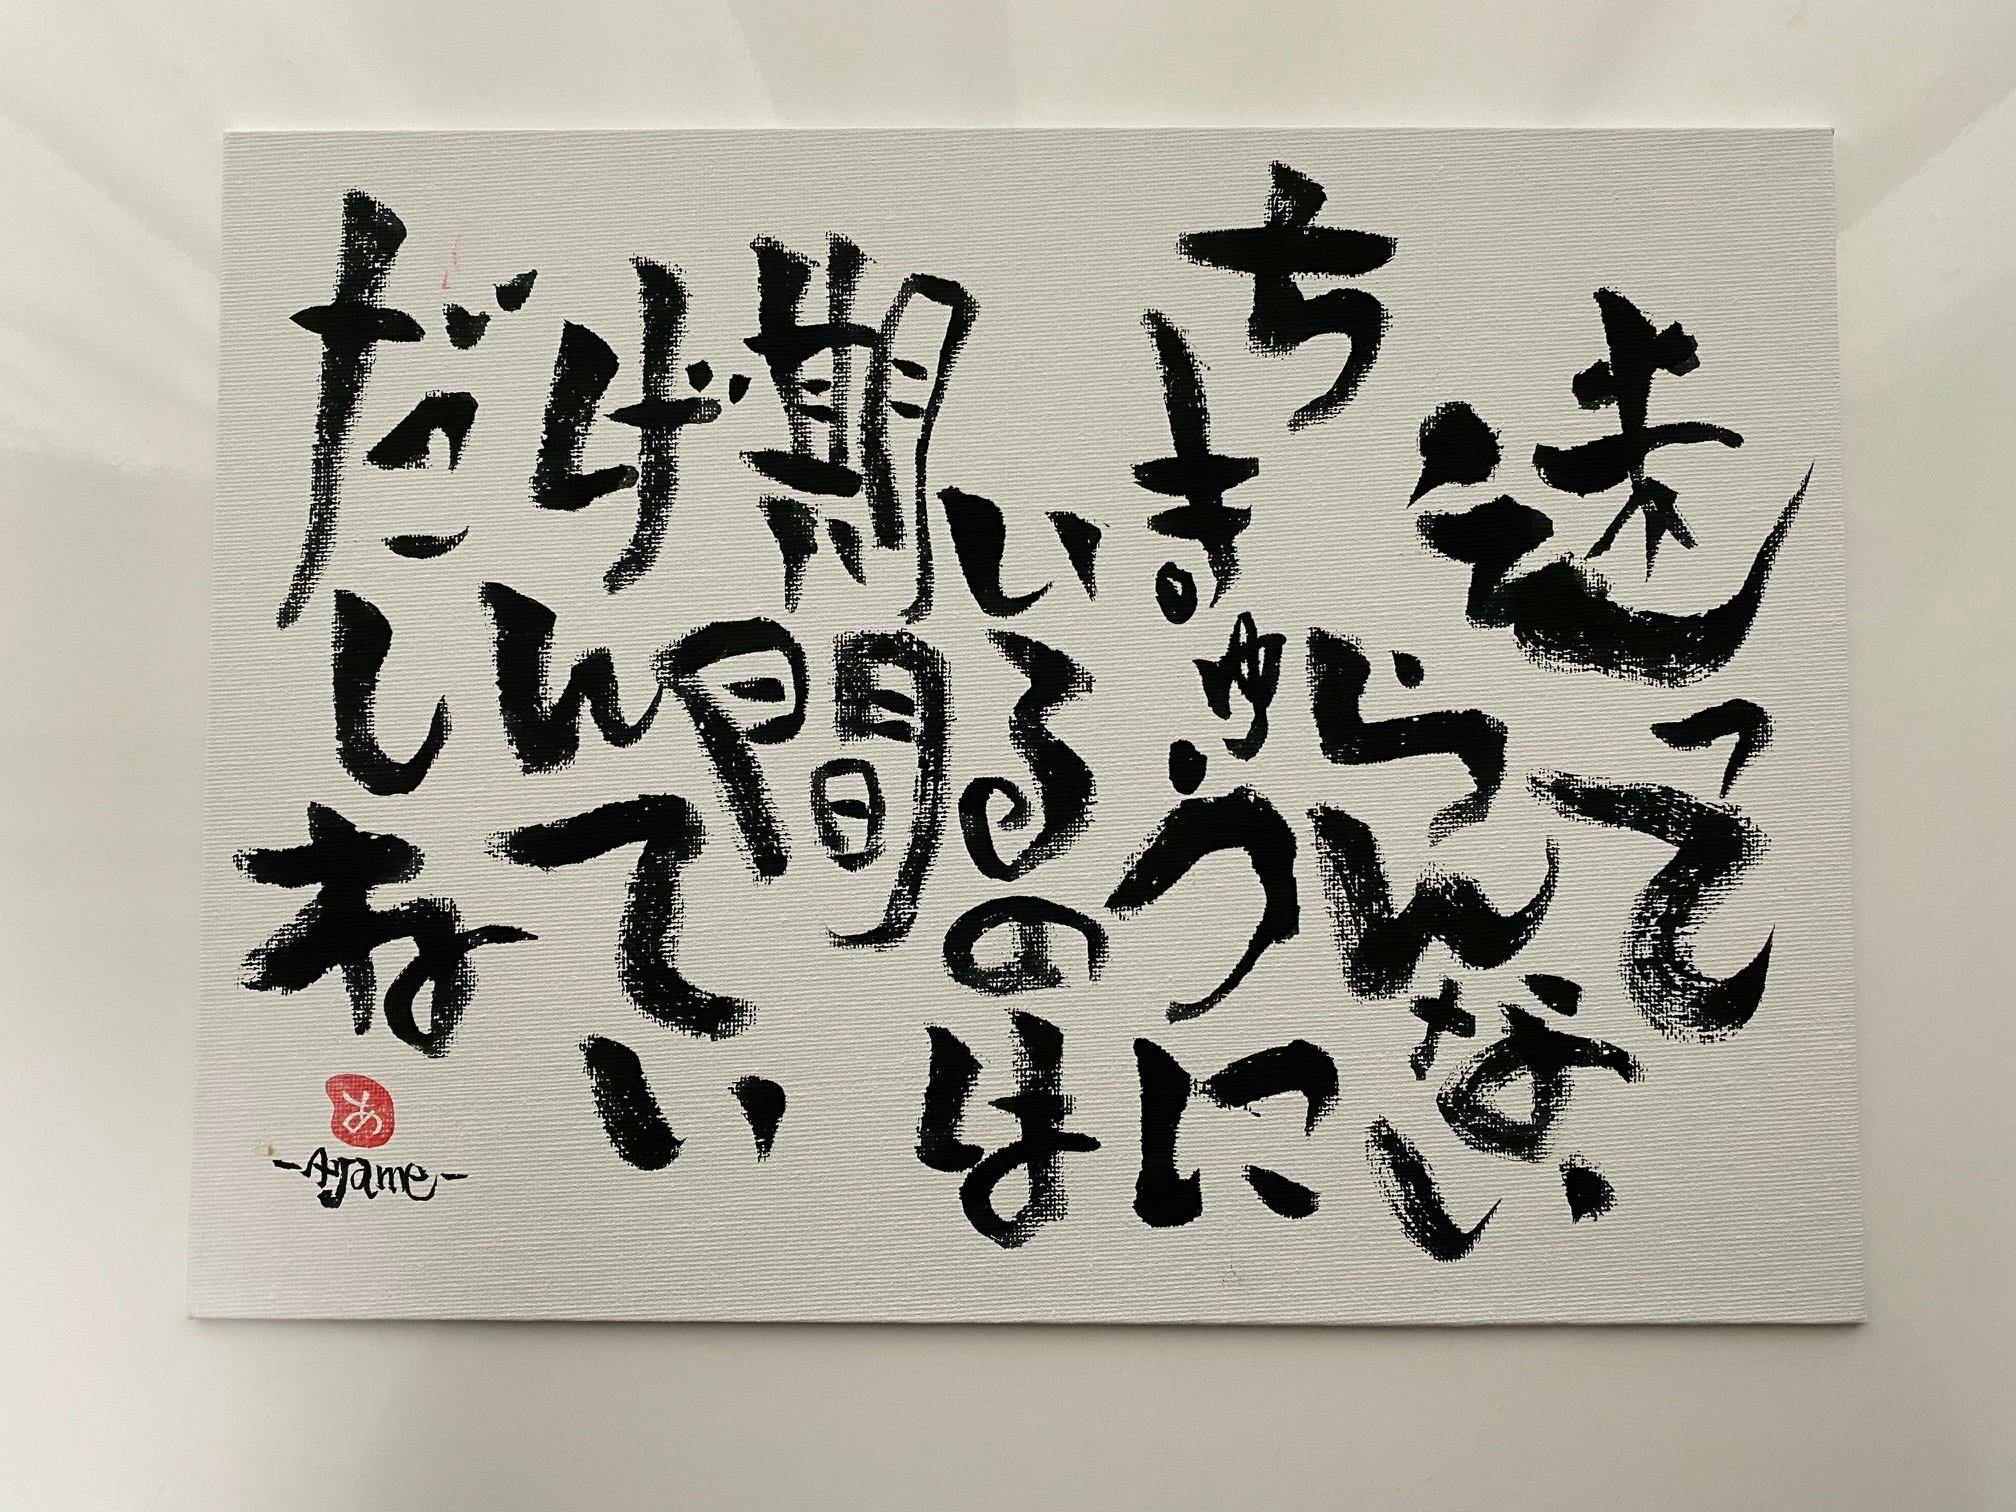 迷って
らんない
ちきゅうに
いるのは
期間
げんてい
だしね
あ
-Ayame-